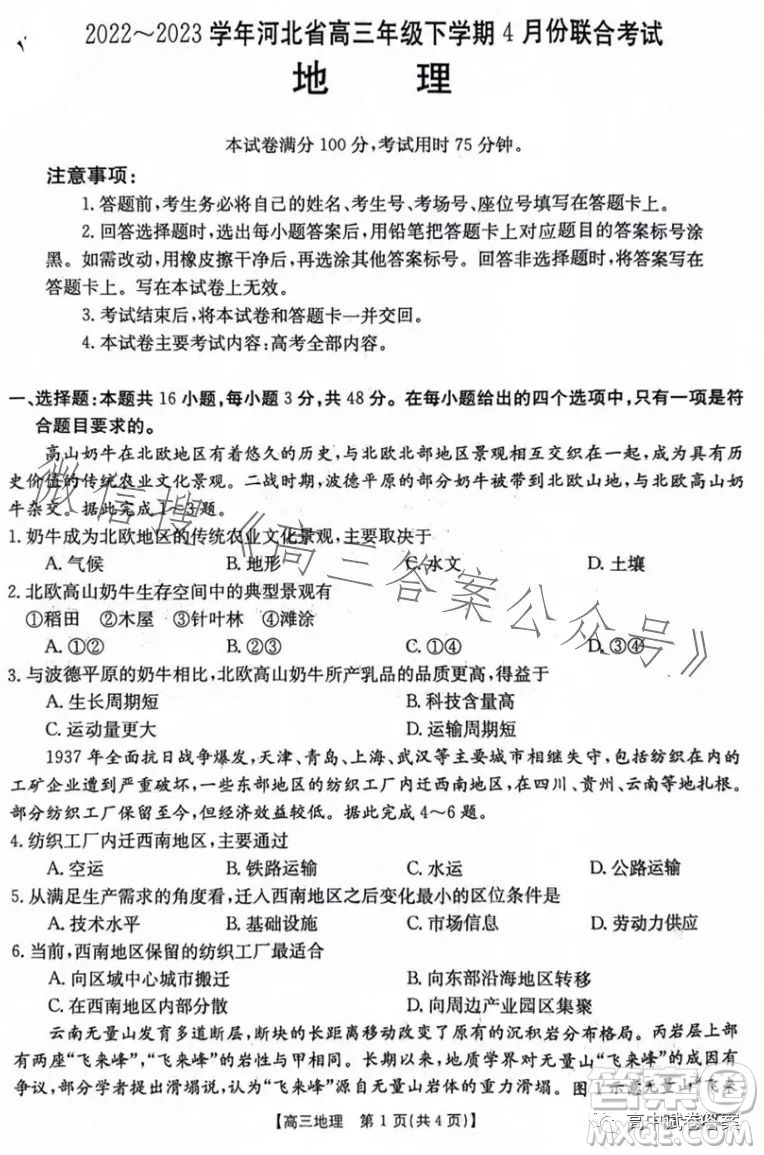 2022～2023学年河北省高三年级下学期4月份联合考试
地 理
本试卷满分100分,考试用时75分钟。
注意事项:
1.答题前,考生务必将自己的姓名、考生号、考场号、座位号填写在答题卡上。
2.回答选择题时,选出每小题答案后,用铅笔把答题卡上对应题目的答案标号涂
黑。如需改动,用橡皮擦干净后,再选涂其他答案标号。回答非选择题时,将答案写在
答题卡上。写在本试卷上无效。
3.考试结束后,将本试卷和答题卡一并交回。
4.本试卷主要考试内容:高考全部内容。
一、选择题:本题共16小题,每小题3分,共48分。在每小题给出的四个选项中,只有一项是符
合题目要求的。
高山奶牛在北欧地区有着悠久的历史,与北欧北部地区景观相互交织在一起,成为具有历
史价值的传统农业文化景观。二战时期,波德平原的部分奶牛被带到北欧山地,与北欧高山奶
牛杂交。据此完成1～3题。
1.奶牛成为北欧地区的传统农业文化景观,主要取决于
A.气候 B.地形 C.水文 D.土壤
2.北欧高山奶牛生存空间中的典型景观有
①稻田 ②木屋 ③针叶林 ④滩涂
A.①② B.②③ C.①④ D.③④
3.与波德平原的奶牛相比,北欧高山奶牛所产乳品的品质更高,得益于
A.生长周期短 B.科技含量高
C.运动量更大 D.运输周期短
1937年全面抗日战争爆发,天津、青岛、上海、武汉等主要城市相继失守,包括纺织在内的
工矿企业遭到严重破坏,一些东部地区的纺织工厂内迁西南地区,在四川、贵州、云南等地扎根。
部分纺织工厂保留至今,但经济效益较低。据此完成4～6题。
4.纺织工厂内迁西南地区,主要通过
A.空运 B.铁路运输 C.水运 D.公路运输
5.从满足生产需求的角度看,迁入西南地区之后变化最小的区位条件是
A.技术水平 B.基础设施 C.市场信息 D.劳动力供应
6.当前,西南地区保留的纺织工厂最适合
A.向区域中心城市搬迁 B.向东部沿海地区转移
C.在西南地区内部分散 D.向周边产业园区集聚
云南无量山发育多道断层,断块的长距离移动改变了原有的沉积岩分布格局。丙岩层上部
有两座“飞来峰”,“飞来峰”的岩性与甲相同。长期以来,地质学界对无量山“飞来峰”的成因有
争议,部分学者提出滑塌说,认为“飞来峰”源自无量山岩体的重力滑塌。图1示意无量山“飞来
【高三地理 第1页(共4页)】
微信搜《高三答案公众号》
高中试卷答案
答案圈
MXQE.COM